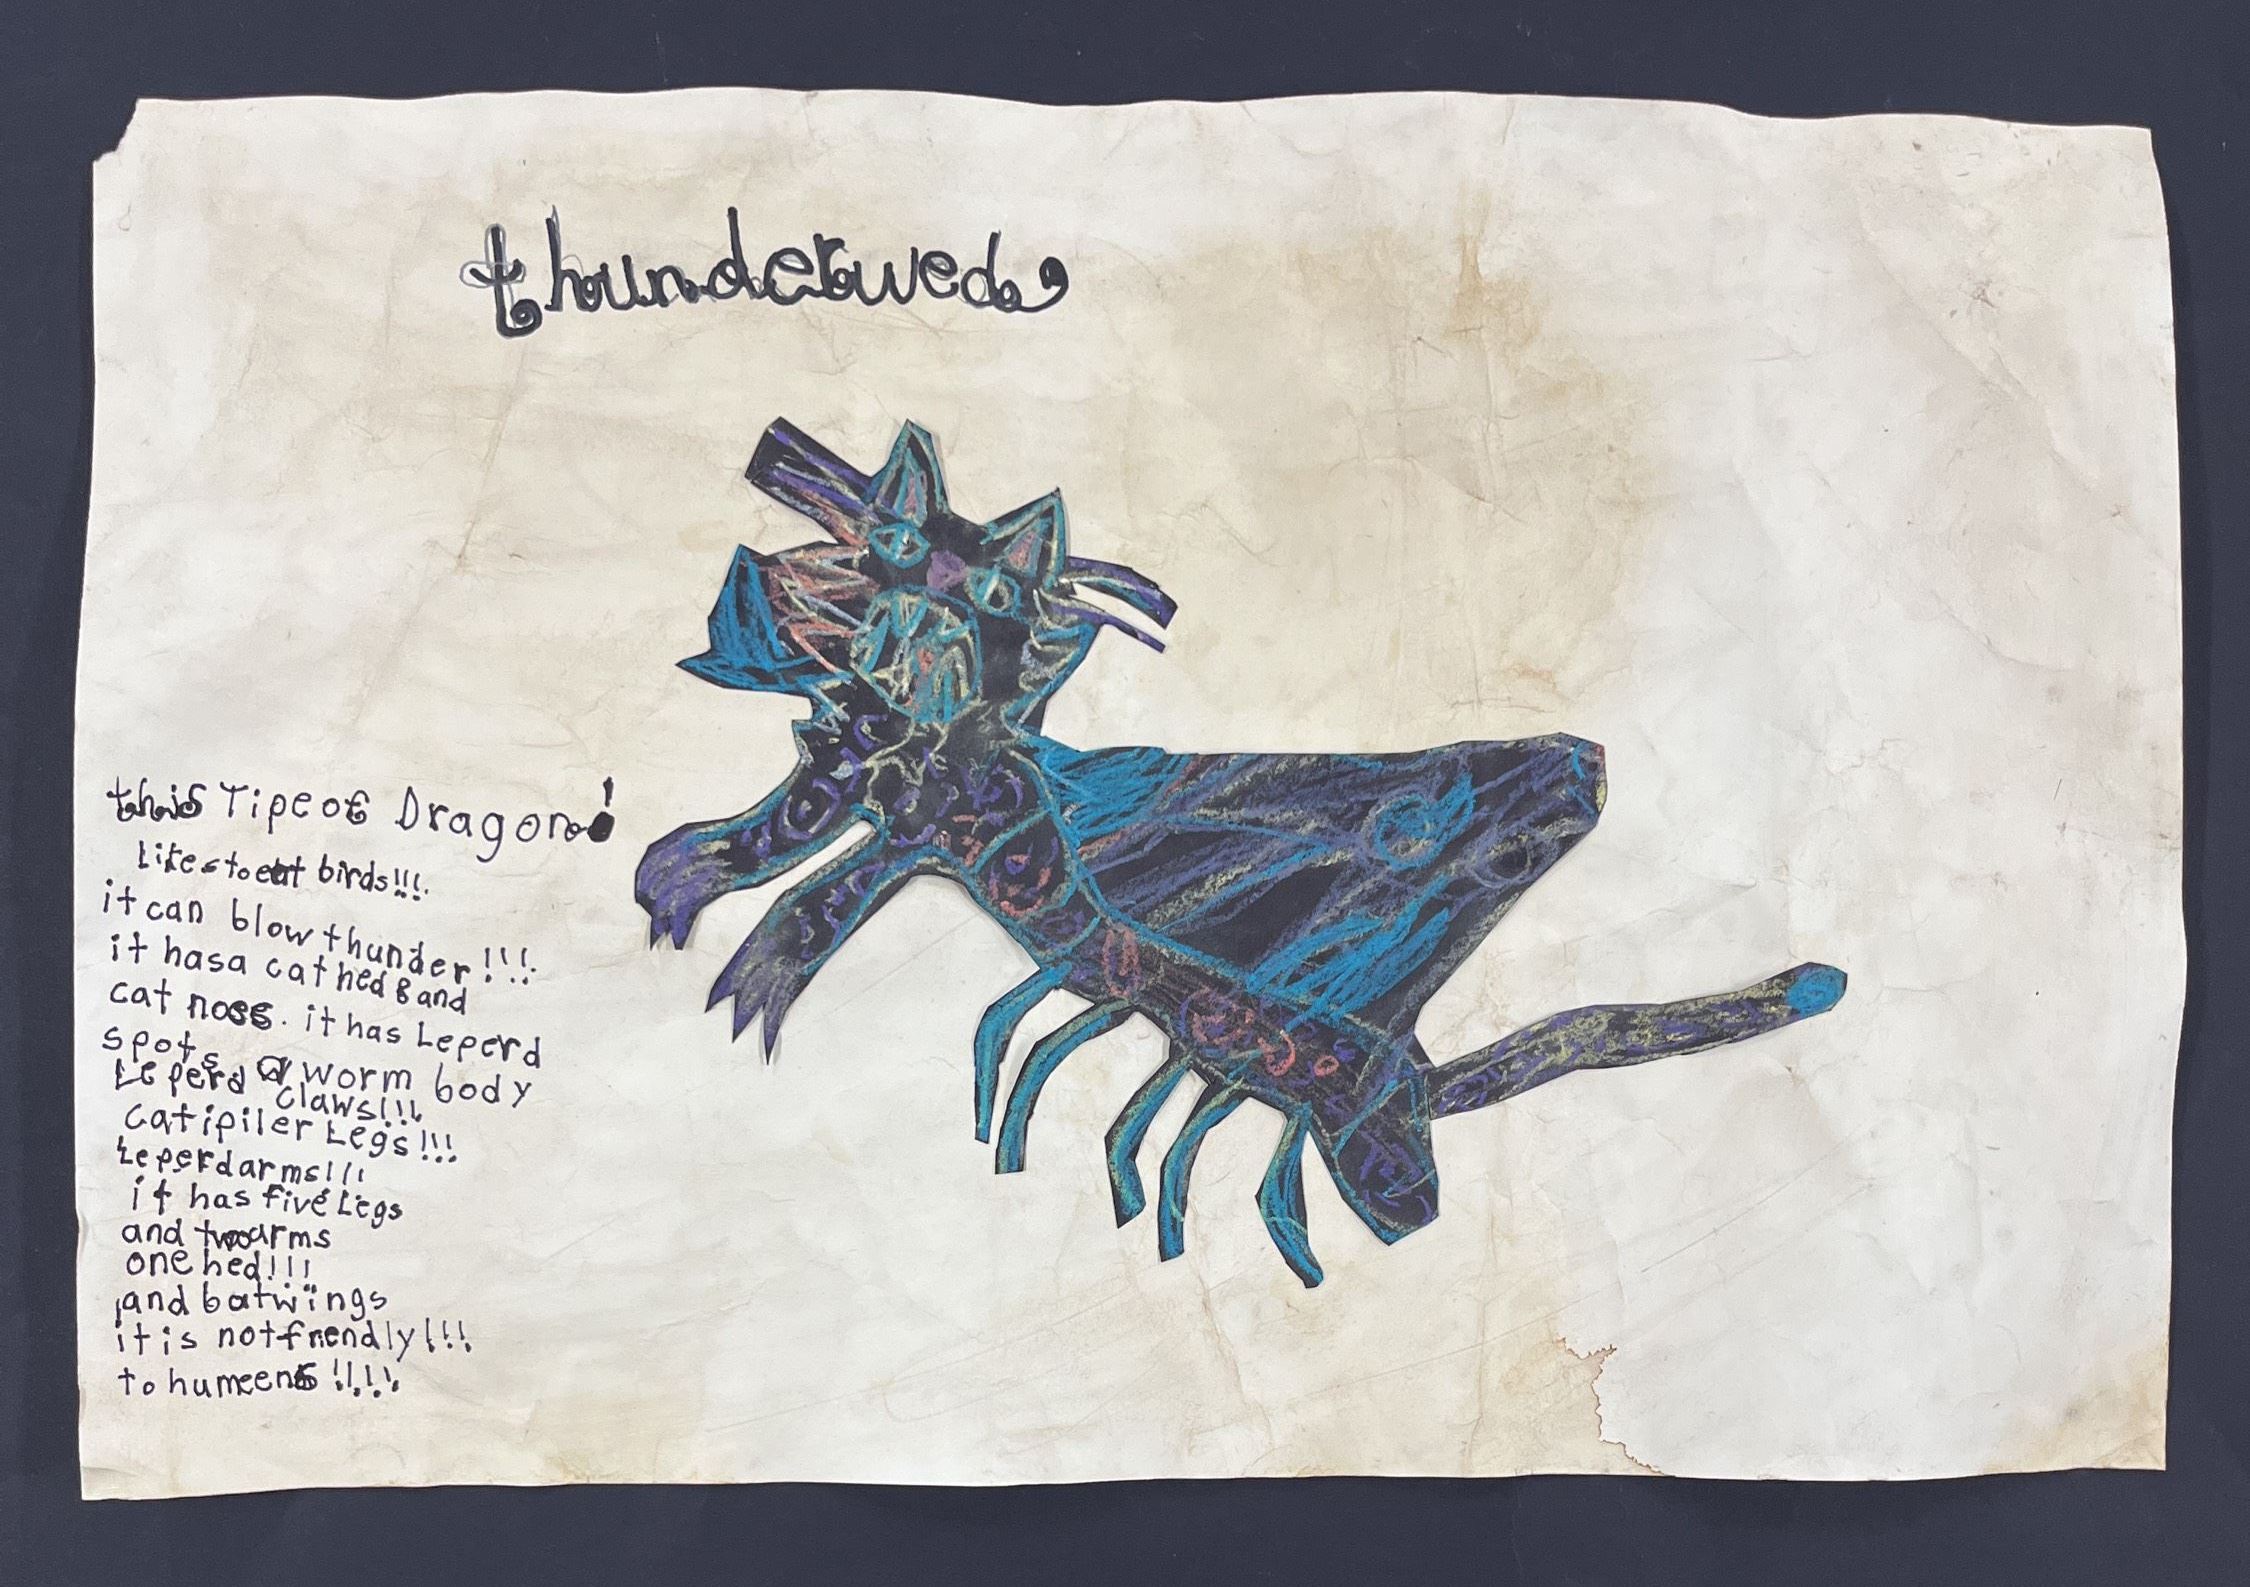 thunderweds
this Tipe of Dragon!
Likes to eat birds!!!
it can blow thunder!!!
it has a cat hed & and
cat noes. it has Leperd
spots
a worm body
Leperd claws!!!
catipiler Legs!!!
Leperd arms!!!
it has five Legs
and two arms
one hed!!!
and bat wings
it is not frendly!!!
to humeens!!!!